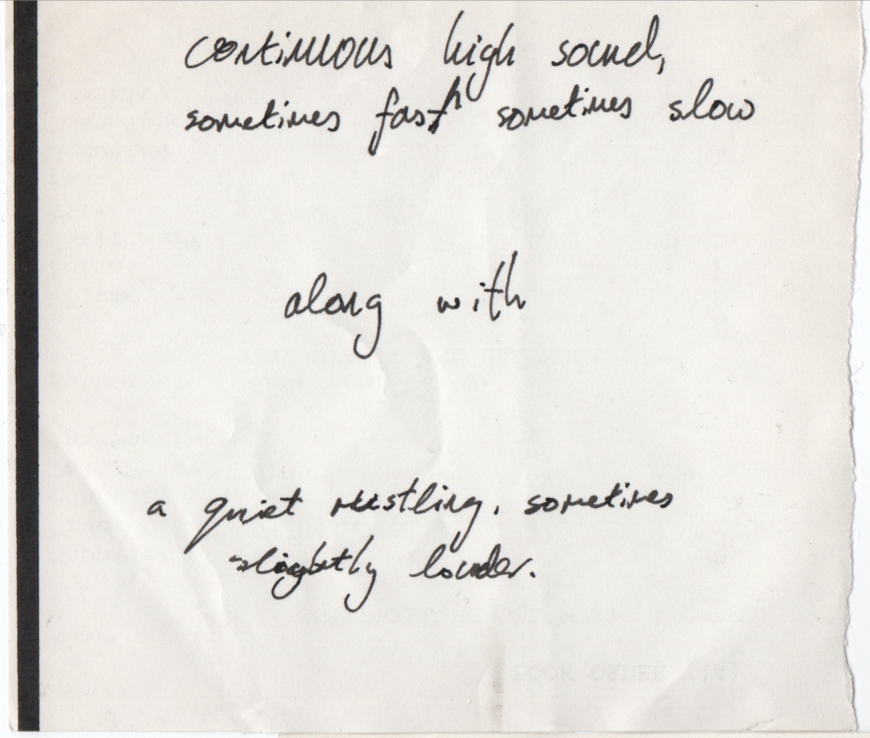 continuous high sound,
sometimes fast sometimes slow
along with
a quiet rustling, sometimes
slightly louder.
BOOK ORDER